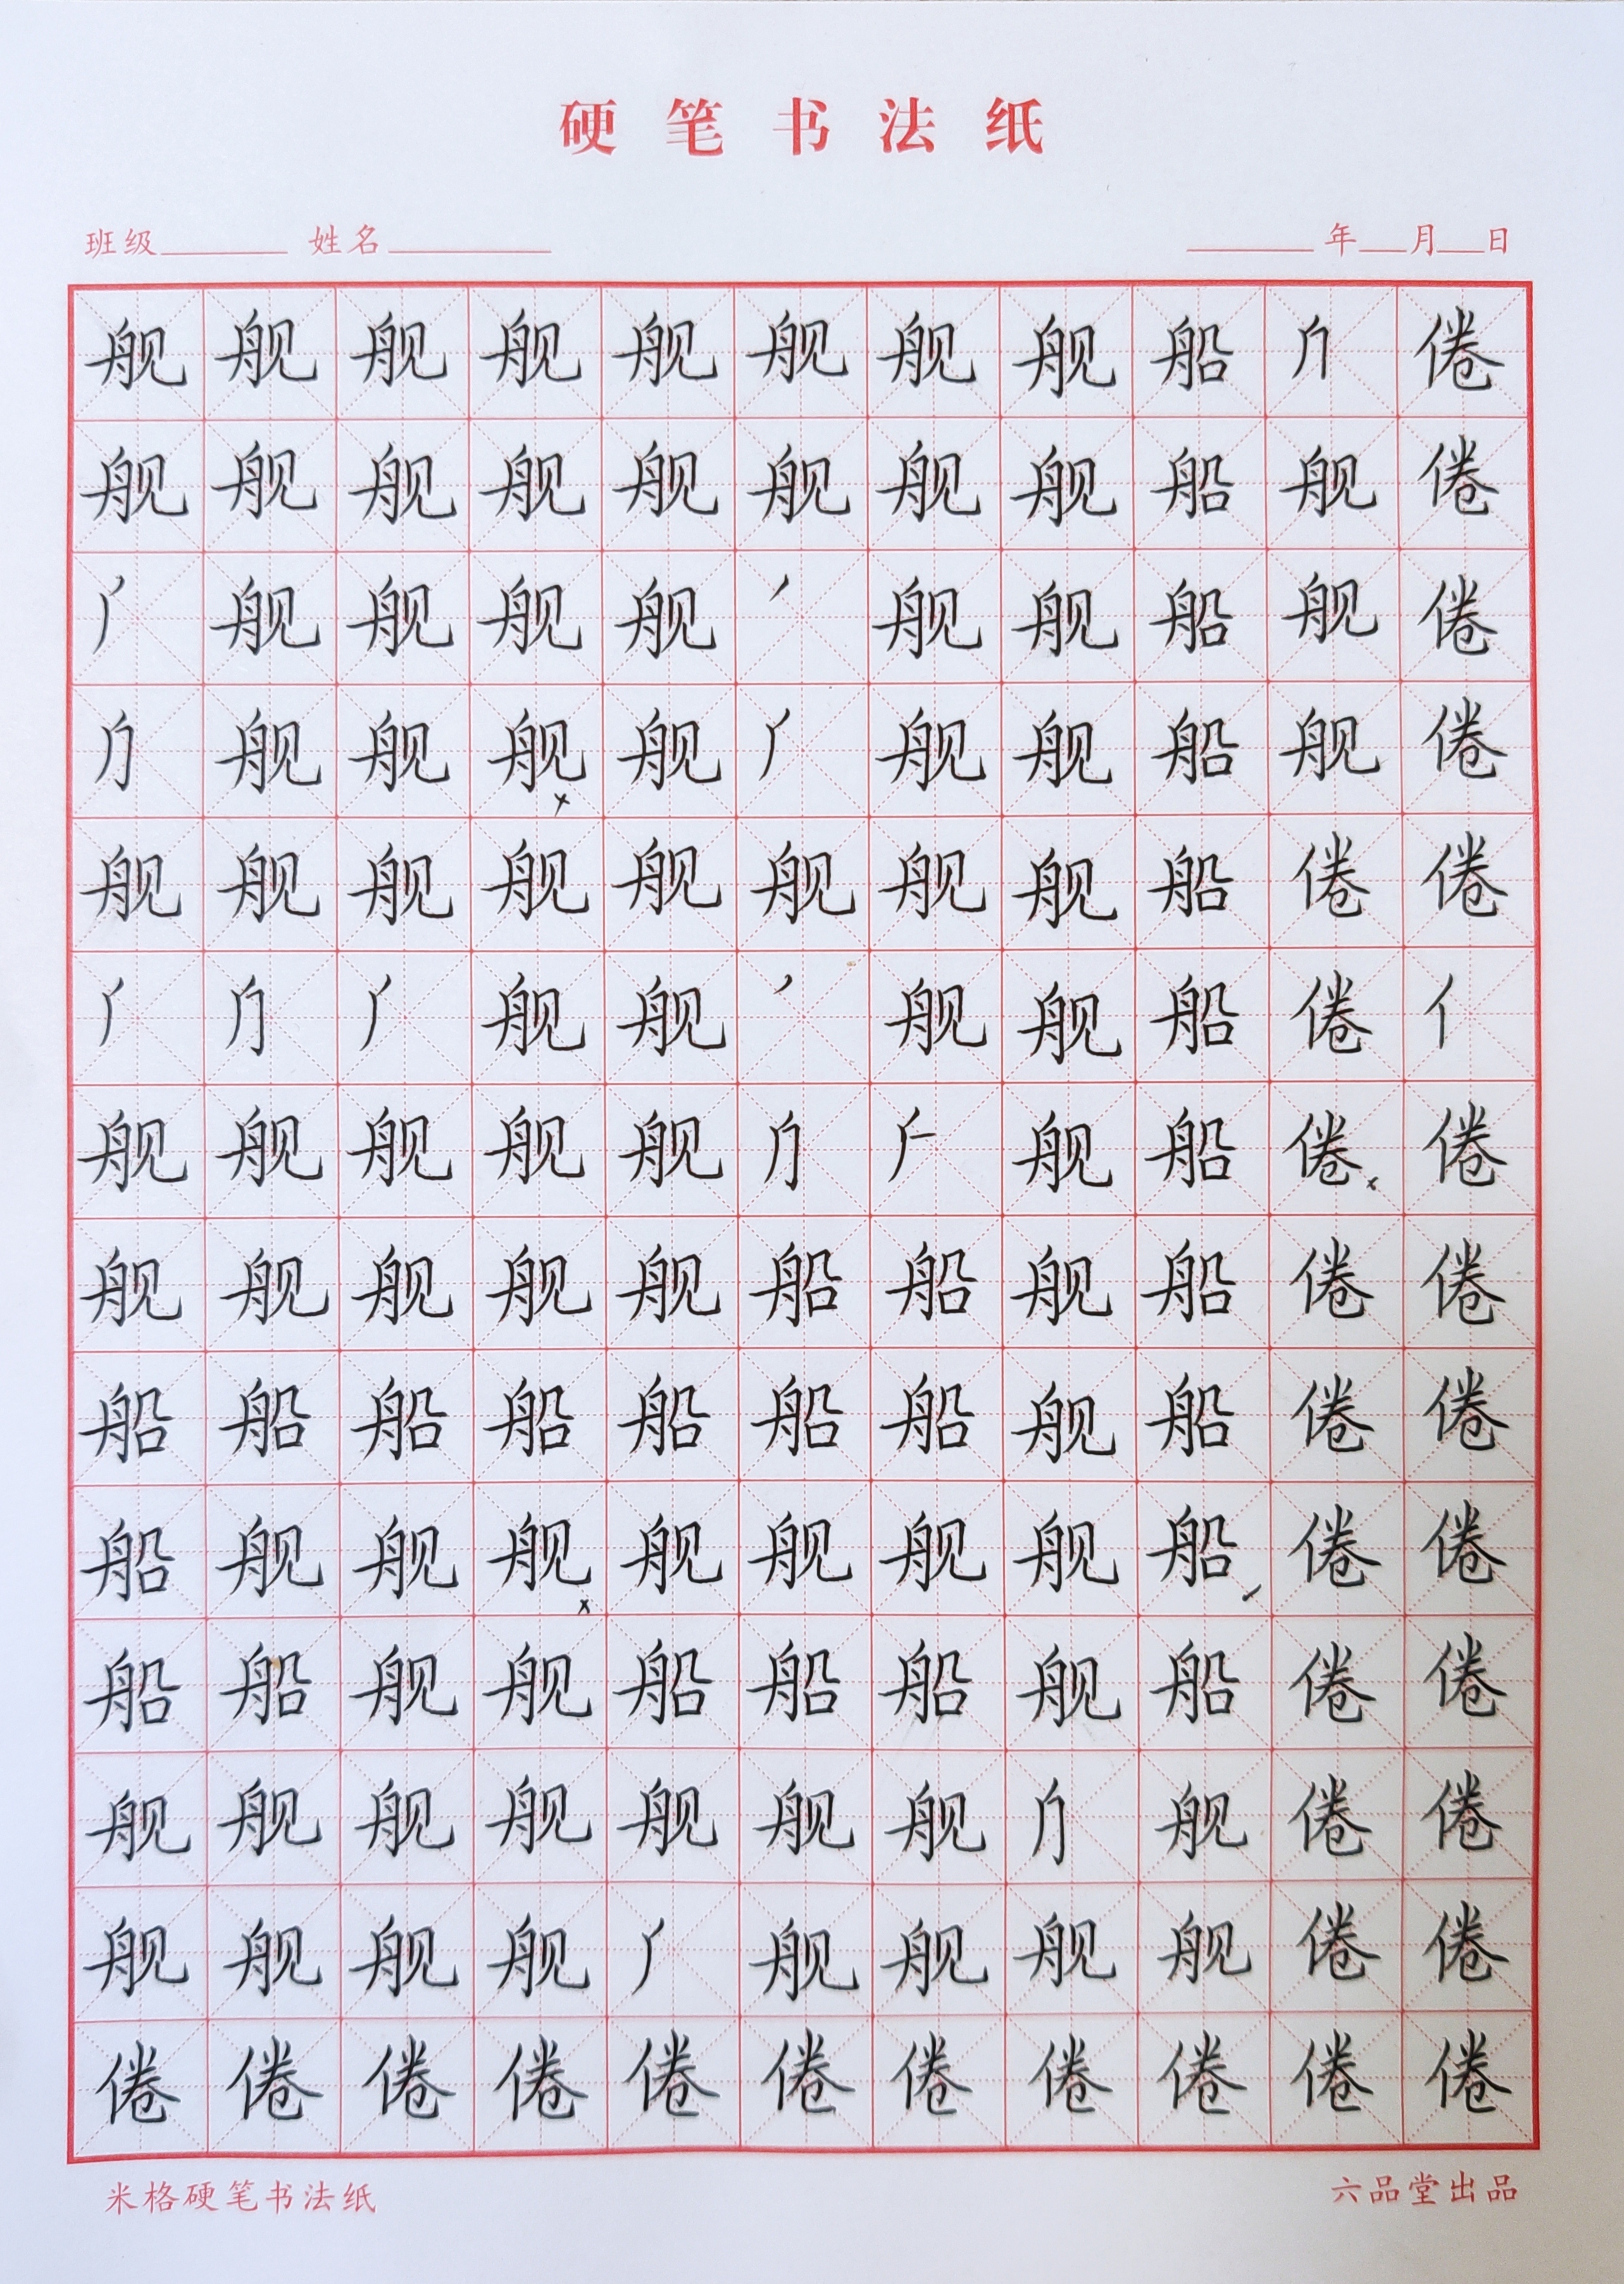 硬笔书法纸
班级 姓名 年 月 日
舰舰舰舰舰舰舰舰船倦
舰舰舰舰舰舰舰舰船舰倦
舰舰舰舰舰舰船舰倦
舰舰舰舰舰舰船舰倦
舰舰舰舰舰舰舰舰船倦倦
舰舰舰舰船倦亻
舰舰舰舰舰舰船倦倦
舰舰舰舰舰船船舰船倦倦
船船船船船船船舰船倦倦
船舰舰舰舰舰舰舰船倦倦
船船舰舰船船船舰船倦倦
舰舰舰舰舰舰舰舰倦倦
舰舰舰舰舰舰舰舰倦倦
倦倦倦倦倦倦倦倦倦倦倦
米格硬笔书法纸 六品堂出品